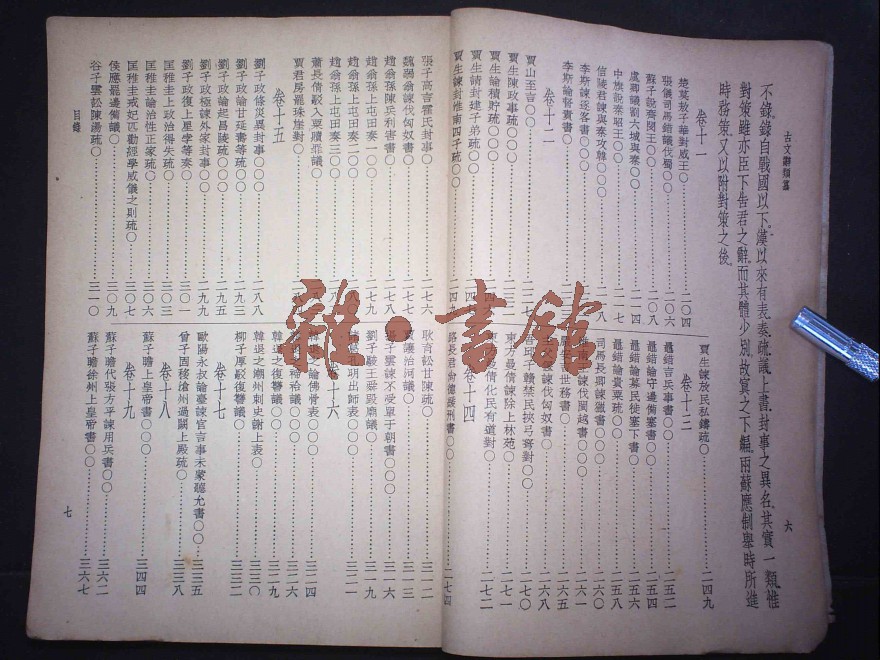 古文辭類纂
六
不錄。錄自戰國以下。漢以來有表。奏。疏。議。上書。封事之異名。其實一類。惟
對策雖亦臣下告君之辭。而其體少別。故寘之下編。兩蘇應制舉時所進
時務策。又以附對策之後。
卷十一
楚莫敖子華對威王〇……二〇四
張儀司馬錯議伐蜀〇〇〇……二〇六
蘇子說齊閔王〇〇……二〇八
虞卿議割六城與秦〇〇
中旗說秦昭王〇〇……二一七
信陵君諫與秦攻韓〇〇〇
李斯諫逐客書〇〇〇
李斯論督責書〇
卷十二
賈山至言〇〇……二二七
賈生陳政事疏〇〇〇
賈生論積貯疏〇〇
賈生請封建子弟疏〇〇
賈生諫封淮南四子疏〇〇……二四九
賈生諫放民私鑄疏〇……二四九
卷十三
鼂錯言兵事書〇〇……二五二
鼂錯論守邊備塞書〇〇……二五四
鼂錯論募民徙塞下書〇……二五八
鼂錯論貴粟疏〇〇……二五八
司馬長卿諫獵書〇〇〇……二六〇
淮南王諫伐閩越書〇〇〇……二六一
嚴安言世務書〇……二六五
主父偃諫伐匈奴書〇……二六八
吾邱子贛禁民挾弓弩對〇〇……二七〇
東方曼倩諫除上林苑〇……二七一
東方曼倩化民有道對〇……二七二
卷十四
路長君尚德緩刑書〇〇……二七四
張子高言霍氏封事〇……二七六
魏弱翁諫伐匈奴書〇……二七七
趙翁孫陳兵利害書〇
趙翁孫上屯田奏一〇〇……二七九
趙翁孫上屯田奏二〇〇
趙翁孫上屯田奏三〇〇
蕭長倩駁入粟贖罪議〇
賈君房罷珠崖對〇
卷十五
劉子政條災異封事〇〇〇……二八八
劉子政論甘延壽等疏〇……二九三
劉子政論起昌陵疏〇〇……二九五
劉子政極諫外家封事〇〇〇……二九九
劉子政復上星孛等奏〇……三〇一
匡稚圭上政治得失疏〇……三〇三
匡稚圭論治性正家疏〇
匡稚圭戒妃匹勸經學威儀之則疏〇……三〇七
侯應罷邊備議〇……三〇九
谷子雲訟陳湯疏〇……三一〇
耿育訟甘陳疏〇……三一二
賈讓治河議〇……三一三
揚子雲諫不受單于朝書〇〇……三一六
劉子駿王舜毀廟議〇……三一九
諸葛孔明出師表〇〇……三二一
卷十六
韓退之論佛骨表〇〇〇……三二四
韓退之禘祫議〇〇〇……三二六
韓退之復讎議〇〇……三二九
韓退之潮州刺史謝上表〇……三三〇
柳子厚駁復讎議〇……三三二
卷十七
歐陽永叔論臺諫官言事未蒙聽允書〇〇……三三五
曾子固移滄州過闕上殿疏〇……三三八
卷十八
蘇子瞻上皇帝書〇〇……三四四
卷十九
蘇子瞻代張方平諫用兵書〇〇……三六二
蘇子瞻徐州上皇帝書〇〇……三六七
目錄
七
雜·書館